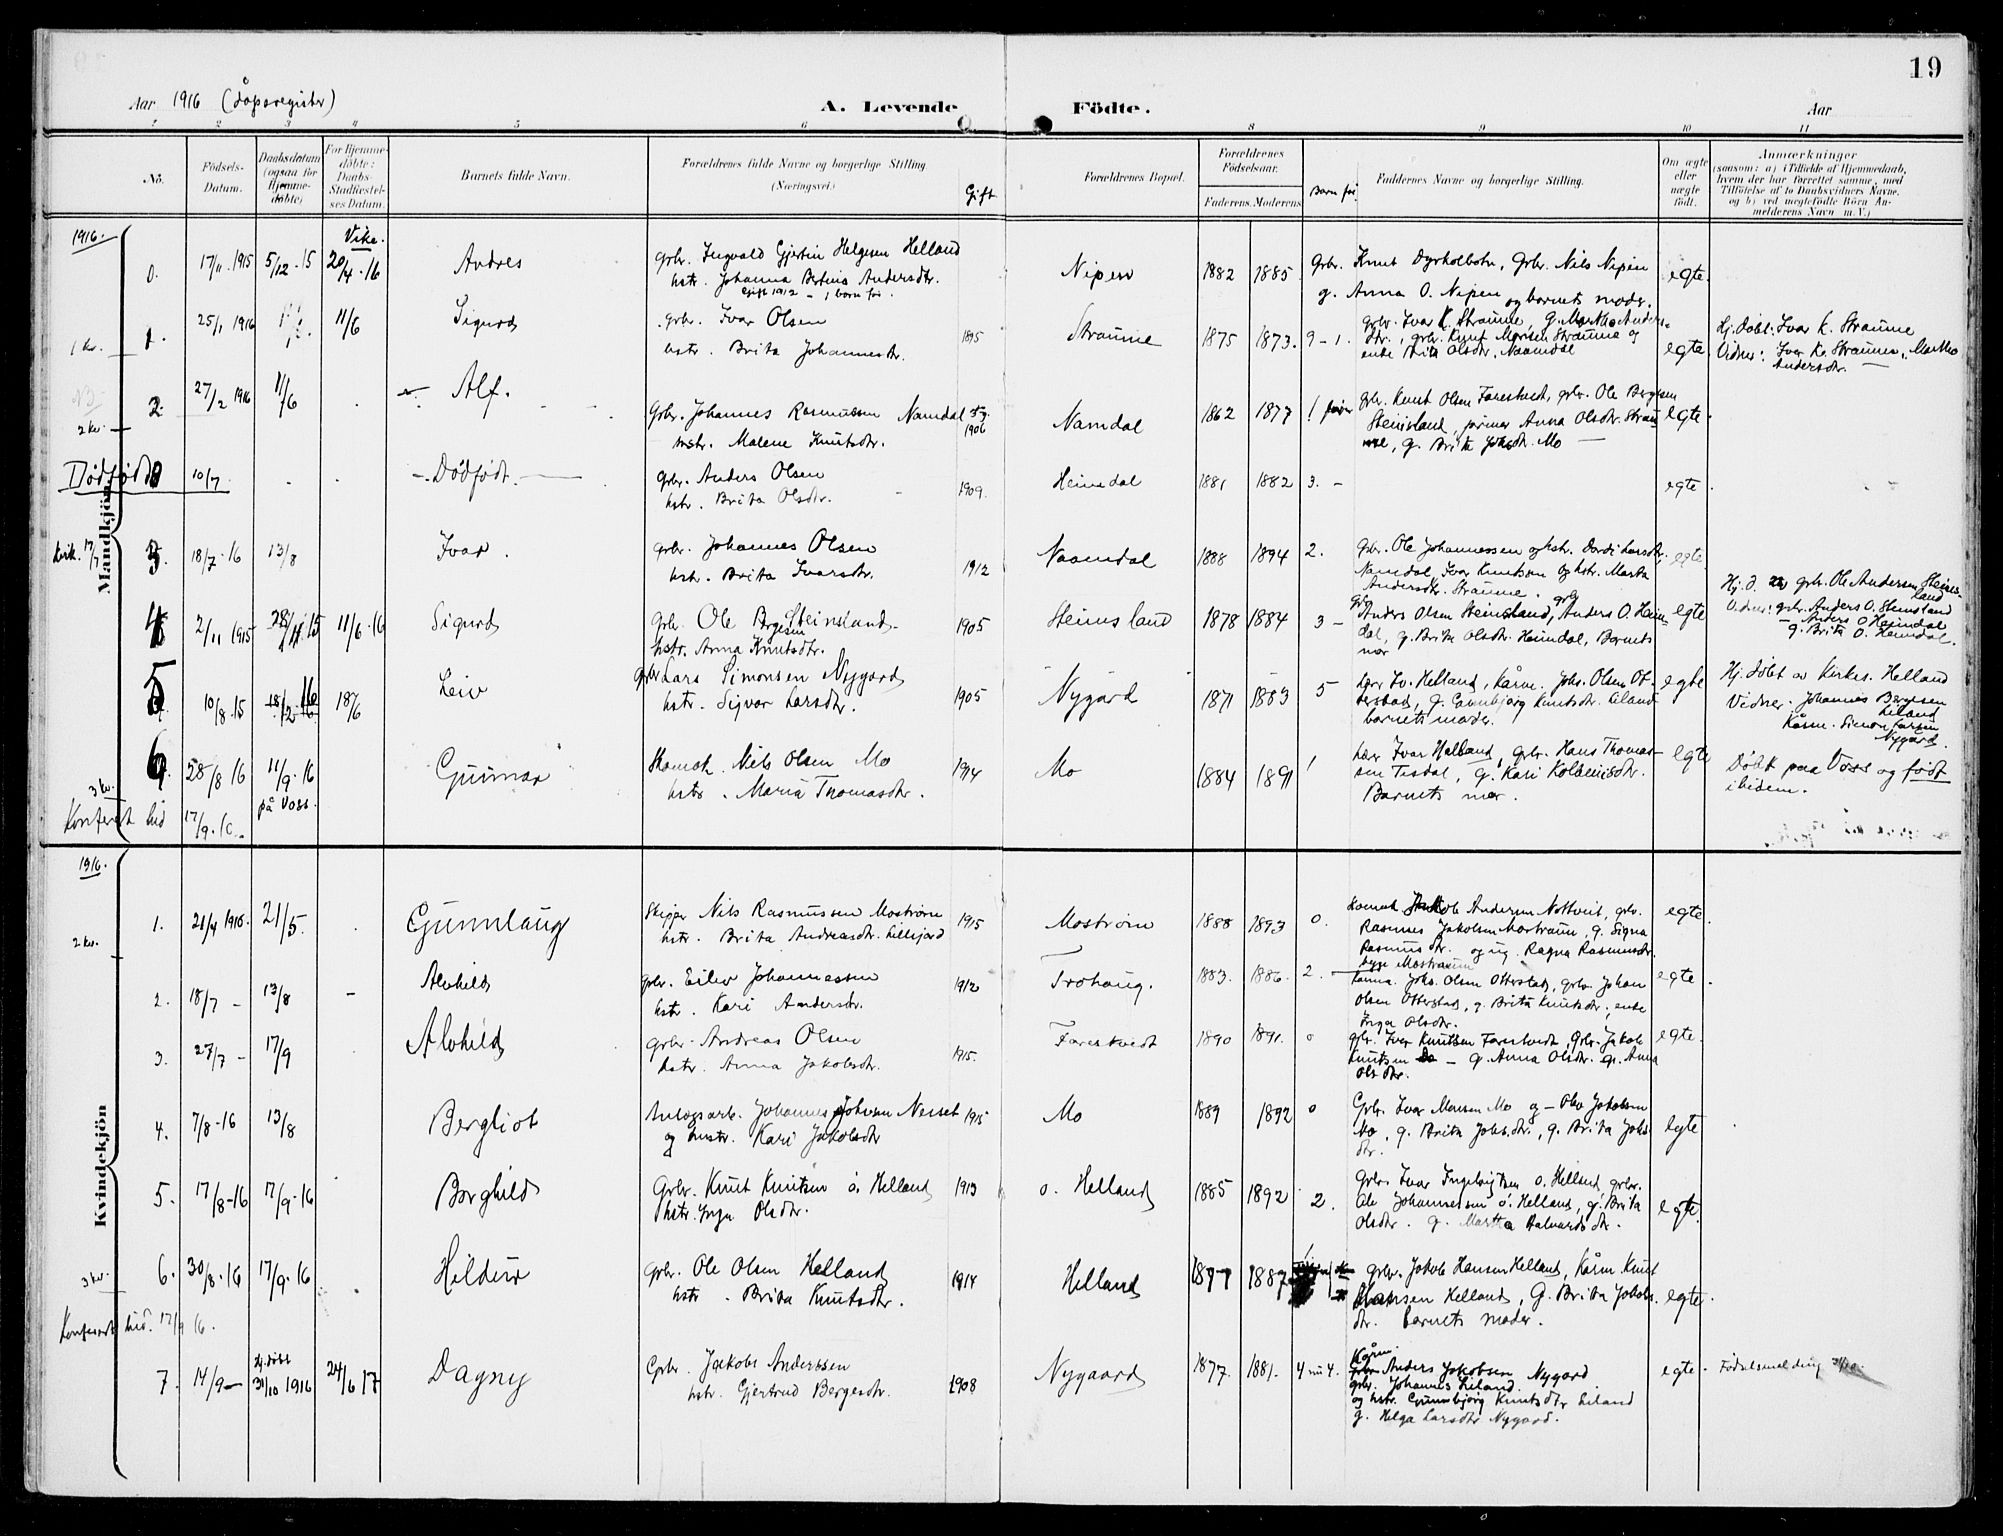 19
Aar 1916 (dåpsregister) A. Levende Födte. Aar
1 2 3 4 5 6 8 9 10 11
No. Födsels-Datum. Daabsdatum (ogsaa for Hjemmedöbte) For Hjemmedöbte: Daabs-Stadfæstelses Datum. Barnets fulde Navn. Forældrenes fulde Navne og borgerlige Stilling (Næringsvei.) Gift Forældrenes Bopæl. Forældrenes Födselsaar. Faderens. Moderens. Barn før. Faddernes Navne og borgerlige Stilling. Om ægte eller uægte födt. Anmærkninger
(saasom: a) i Tilfælde af Hjemmedaab, hvem der har forrettet samme, med Tilföielse af to Daabsvidners Navne, og b) ved uegtefödte Börn Anmelderens Navn m. V.)
Mandkjön
1916. Vike.
0. 17/11 1915 5/12 15 20/4 16 Andres
Grbr. Ingvald Gjertin Helgesen Helland
hstr. Johanna Bertina Andersdtr.
Gift 1912 - 1 barn før.
Nipen 1882 1885.
Grbr. Knut Dyrkolbotn, Grbr. Nils Nipen
g. Anna O. Nipen og barnets moder.
egte.
1. 25/1 1916 11/6 Sigurd
grbr. Ivar Olsen
hstr. Brita Johannesdtr. 1895
Straume 1875 1873. 9 - 1.
grbr. Ivar K. Straume, G. Martha Anders-
dtr., grbr. Knut Monsen Straume og
enke Brita Olsdtr. Naamdal
egte
Hj. døbt: Ivar K. Straume
Vidner: Ivar K. Straume, Martha
Andersdtr.
1 kv.
2. 27/2 1916 11/6 Alf.
Grbr. Johannes Rasmussen Namdal
hstr. Malene Knutsdtr. 1906
Namdal 1862 1877 1 før
grbr. Knut Olsen Farestveit, grbr. Ole Bergesen
Steinsland, pikerne Anna Olsdtr. Strau
me, g. Brita Johsdtr. Mo
egte.
2 kv.
Dødfødt 10/7 - Dødfødt. -
Grbr. Anders Olsen
hstr. Brita Olsdtr. 1909.
Heimdal 1881 1882 3. - egte.
3. 18/7 16 13/8 Ivar.
grbr. Johannes Olsen
hstr. Brita Ivarsdtr. 1912
Naamdal 1888 1894 2.
Grbr. Ole Johannessen og hstr. Dordi Larsdtr.
Namdal, Ivar Knutsen og hstr. Marta
Andersdtr. Straume.
egte.
4 2/11 1915 28/11 15 11/6 16 Sigurd
grbr. Ole Bergesen Steinsland
hstr. Anna Knutsdtr. 1905
Steinsland 1878 1884 3 -
Anders Olsen Steinsland, Anders O. Heim-
dal, g. Brita Olsdtr. Heimdal, Barnets
mor
egte
Hj. d. av grbr. Ole Andersen Steins-
land
Vidner: grbr. Anders O. Steinsland
- Anders O Heimdal
g. Brita O. Heimdal.
5 10/8 15 18/6 Leiv
grbr Lars Simonsen Nygard
hstr. Sigvor Larsdtr. 1905
Nygård 1871 1883 5
Lær Iv. Helland, Kårm. Johs. Olsen Ot-
terstad, g. Gunnbjørg Knutsdtr. Eiland
barnets moder.
egte
Hj. døbt av Kirkes. Helland
Vidner. Johannes Bergesen
Eiland
Kårm. Simon Larsen
Nygård.
6 28/8 16 11/9 16 på Voss. Gunnar
Skomak. Nils Olsen Mo
hstr. Maria Thomasdtr. 1914
Mo 1884 1891 1
Lær Ivar Helland, grbr. Hans Thomas-
sen Tesdal, g. Kari Kolbeinsdtr.
Barnets mor.
egte
Døbt paa Voss og født
ibidem.
3 kv.
Konferert hid 17/9. 16.
Kvindekjön
1916.
1. 21/4 1916. 21/5. Gunnlaug
Skipper Nils Rasmussen Mostrøm
hstr. Brita Andreasdtr. Eellisjord 1915
Mostrøm 1888 1893 0.
Jakob Andersen Nottveit, grbr.
Rasmus Jakobsen Mostraum, g. Signa
Rasmusdtr. og ug. Ragna Rasmusdtr.
begge Mostraum
egte.
2 kv.
2. 18/7 - 13/8 - Alvhild
grbr. Eiliv Johannessen
hstr. Kari Andersdtr. 1912
Trohaug. 1883. 1886. 2. -
Johs. Olsen Otterstad, grbr. Johan
Olsen Otterstad, g. Brita Knutsdtr., enke
Inga Olsdtr.
egte.
3. 27/7 - 17/9 Alvhild
Grbr. Andreas Olsen
hstr. Anna Jakobsdtr. 1915.
Farestveit 1890 1891. 0
grbr. Iver Knutsen Farestveit, Grbr. Jakob
Knutsen Do - g. Anna Olsdtr. g. Anna
Olsdtr.
egte.
4. 7/8 - 16 13/8 Bergliot
Anlægsarb. Johannes Johnsen Nesset 1915
og hustr. Kari Jakobsdtr
Mo 1889 1892 0
Grbr. Ivar Monsen Mo og - Olav Jakobsen
Mo, g. Brita Johs.dtr., g. Brita Johs
dtr.
egte
5. 17/8 - 16 17/9 - 16 Borghild
Grbr. Knut Knutsen ö. Helland 1913
hstr. Inga Olsdtr.
o. Helland 1885 1892 2.
Grbr Ivar Ingebrigtsen o. Helland, grbr.
Ole Johannessen ö. Helland, g. Brita
Olsdtr. g. Martta Aalvardsdtr.
egte.
6. 30/8 - 16 17/9 - 16 Hildur
Grbr. Ole Olsen Helland
hstr. Brita Knutsdtr. 1914
Helland 1877 1887
grbr. Jakob Hansen Helland, Kårm. Knut
Hansen Helland, G. Brita Jakobs
dtr. barnets moder.
egte.
3 kv.
Konferert hid. 17/9 16.
7. 14/9 - hj. døbt 31/10 1916 24/6 17 Dagny
Grbr. Jakob Anderssen
hstr. Gjertrud Bergesdtr. 1908
Nygaard 1877. 1881. 4 nu 4.
Kårm.
Anders Jakobsen Nygard
grbr. Johannes Eiland
og hstr. Gunnbjørg Knutsdtr Eiland
g. Helga Larsdtr Nygard.
egte.
Fødselsmelding